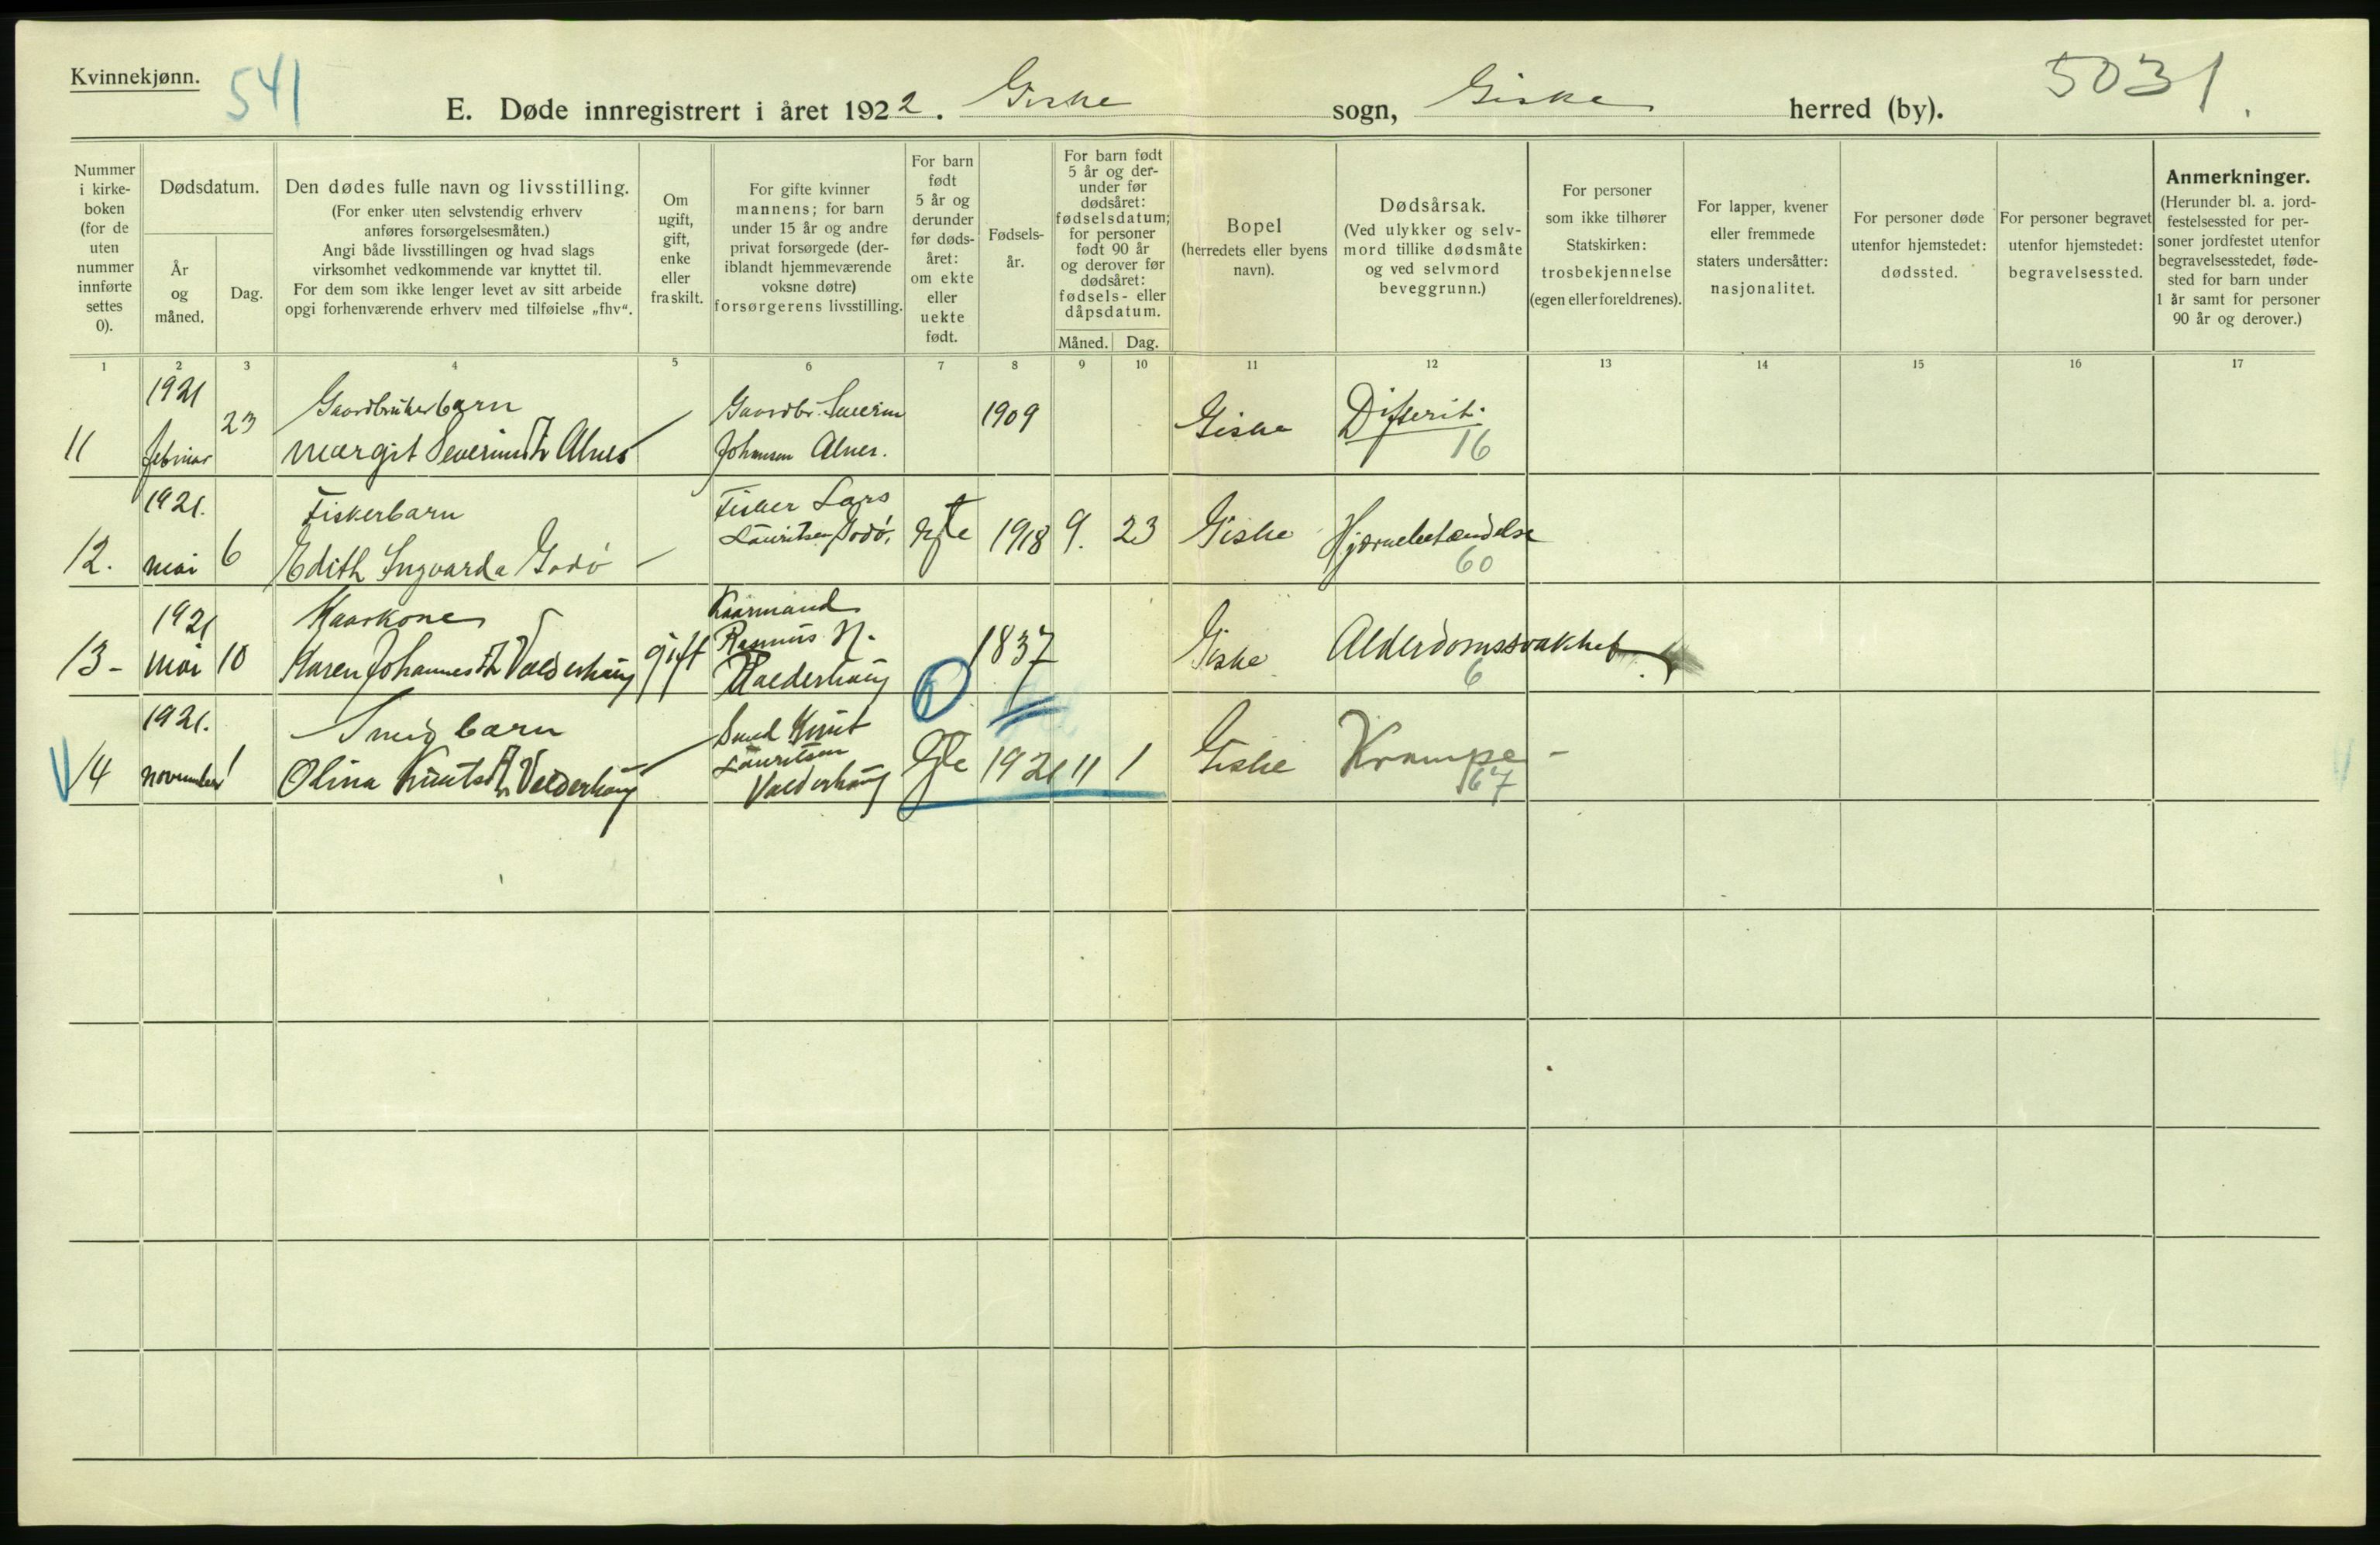 Kvinnekjønn.
541
5031.
E. Døde innregistrert i året 1922. Giske sogn, Giske herred (by).
Nummer
i kirke-
boken
(for de
uten
nummer
innførte
settes
0).
Dødsdatum.
År
og
måned.
Dag.
Den dødes fulle navn og livsstilling.
(For enker uten selvstendig erhverv
anføres forsørgelsesmåten.)
Angi både livsstillingen og hvad slags
virksomhet vedkommende var knyttet til.
For dem som ikke lenger levet av sitt arbeide
opgi forhenværende erhverv med tilføielse „fhv“.
Om
ugift,
gift,
enke
eller
fraskilt.
For gifte kvinner
mannens; for barn
under 15 år og andre
privat forsørgede (der-
iblandt hjemmeværende
voksne døtre)
forsørgerens livsstilling.
For barn
født
5 år og
derunder
før døds-
året:
om ekte
eller
uekte
født.
Fødsels-
år.
For barn født
5 år og der-
under før
dødsåret:
fødselsdatum;
for personer
født 90 år
og derover før
dødsåret:
fødsels- eller
dåpsdatum.
Måned. Dag.
Bopel
(herredets eller byens
navn).
Dødsårsak.
(Ved ulykker og selv-
mord tillike dødsmåte
og ved selvmord
beveggrunn.)
For personer
som ikke tilhører
Statskirken:
trosbekjennelse
(egen eller foreldrenes).
For lapper, kvener
eller fremmede
staters undersåtter:
nasjonalitet.
For personer døde
utenfor hjemstedet:
dødssted.
For personer begravet
utenfor hjemstedet:
begravelsessted.
Anmerkninger.
(Herunder bl. a. jord-
festelsessted for per-
soner jordfestet utenfor
begravelsesstedet, føde-
sted for barn under
1 år samt for personer
90 år og derover.)
1 2 3 4 5 6 7 8 9 10 11 12 13 14 15 16 17
1921 Gaardbrukerbarn Gaardbr. Severin
11 februar 23 Margit Severinsdtr Alnes Johansen Alnes. 1909 Giske Difterit.
16
1921. Fiskerbarn Fisker Lars
12. mai 6 Edith Ingvarda Godø Lauritsen Godø. Egte 1918 9. 23 Giske Hjernebetændelse
60
1921 Kaarkone Kaarmand
13- mai 10 Karen Johannesdtr Valderhaug gift Rasmus N. 1837 Giske Alderdomssvakhet
Valderhaug 6
1921. Smidbarn Smed Knut
14 november 1 Olina Knutsdtr Valderhaug Lauritsen Egte 1921 11 1 Giske Krampe -
Valderhaug 67